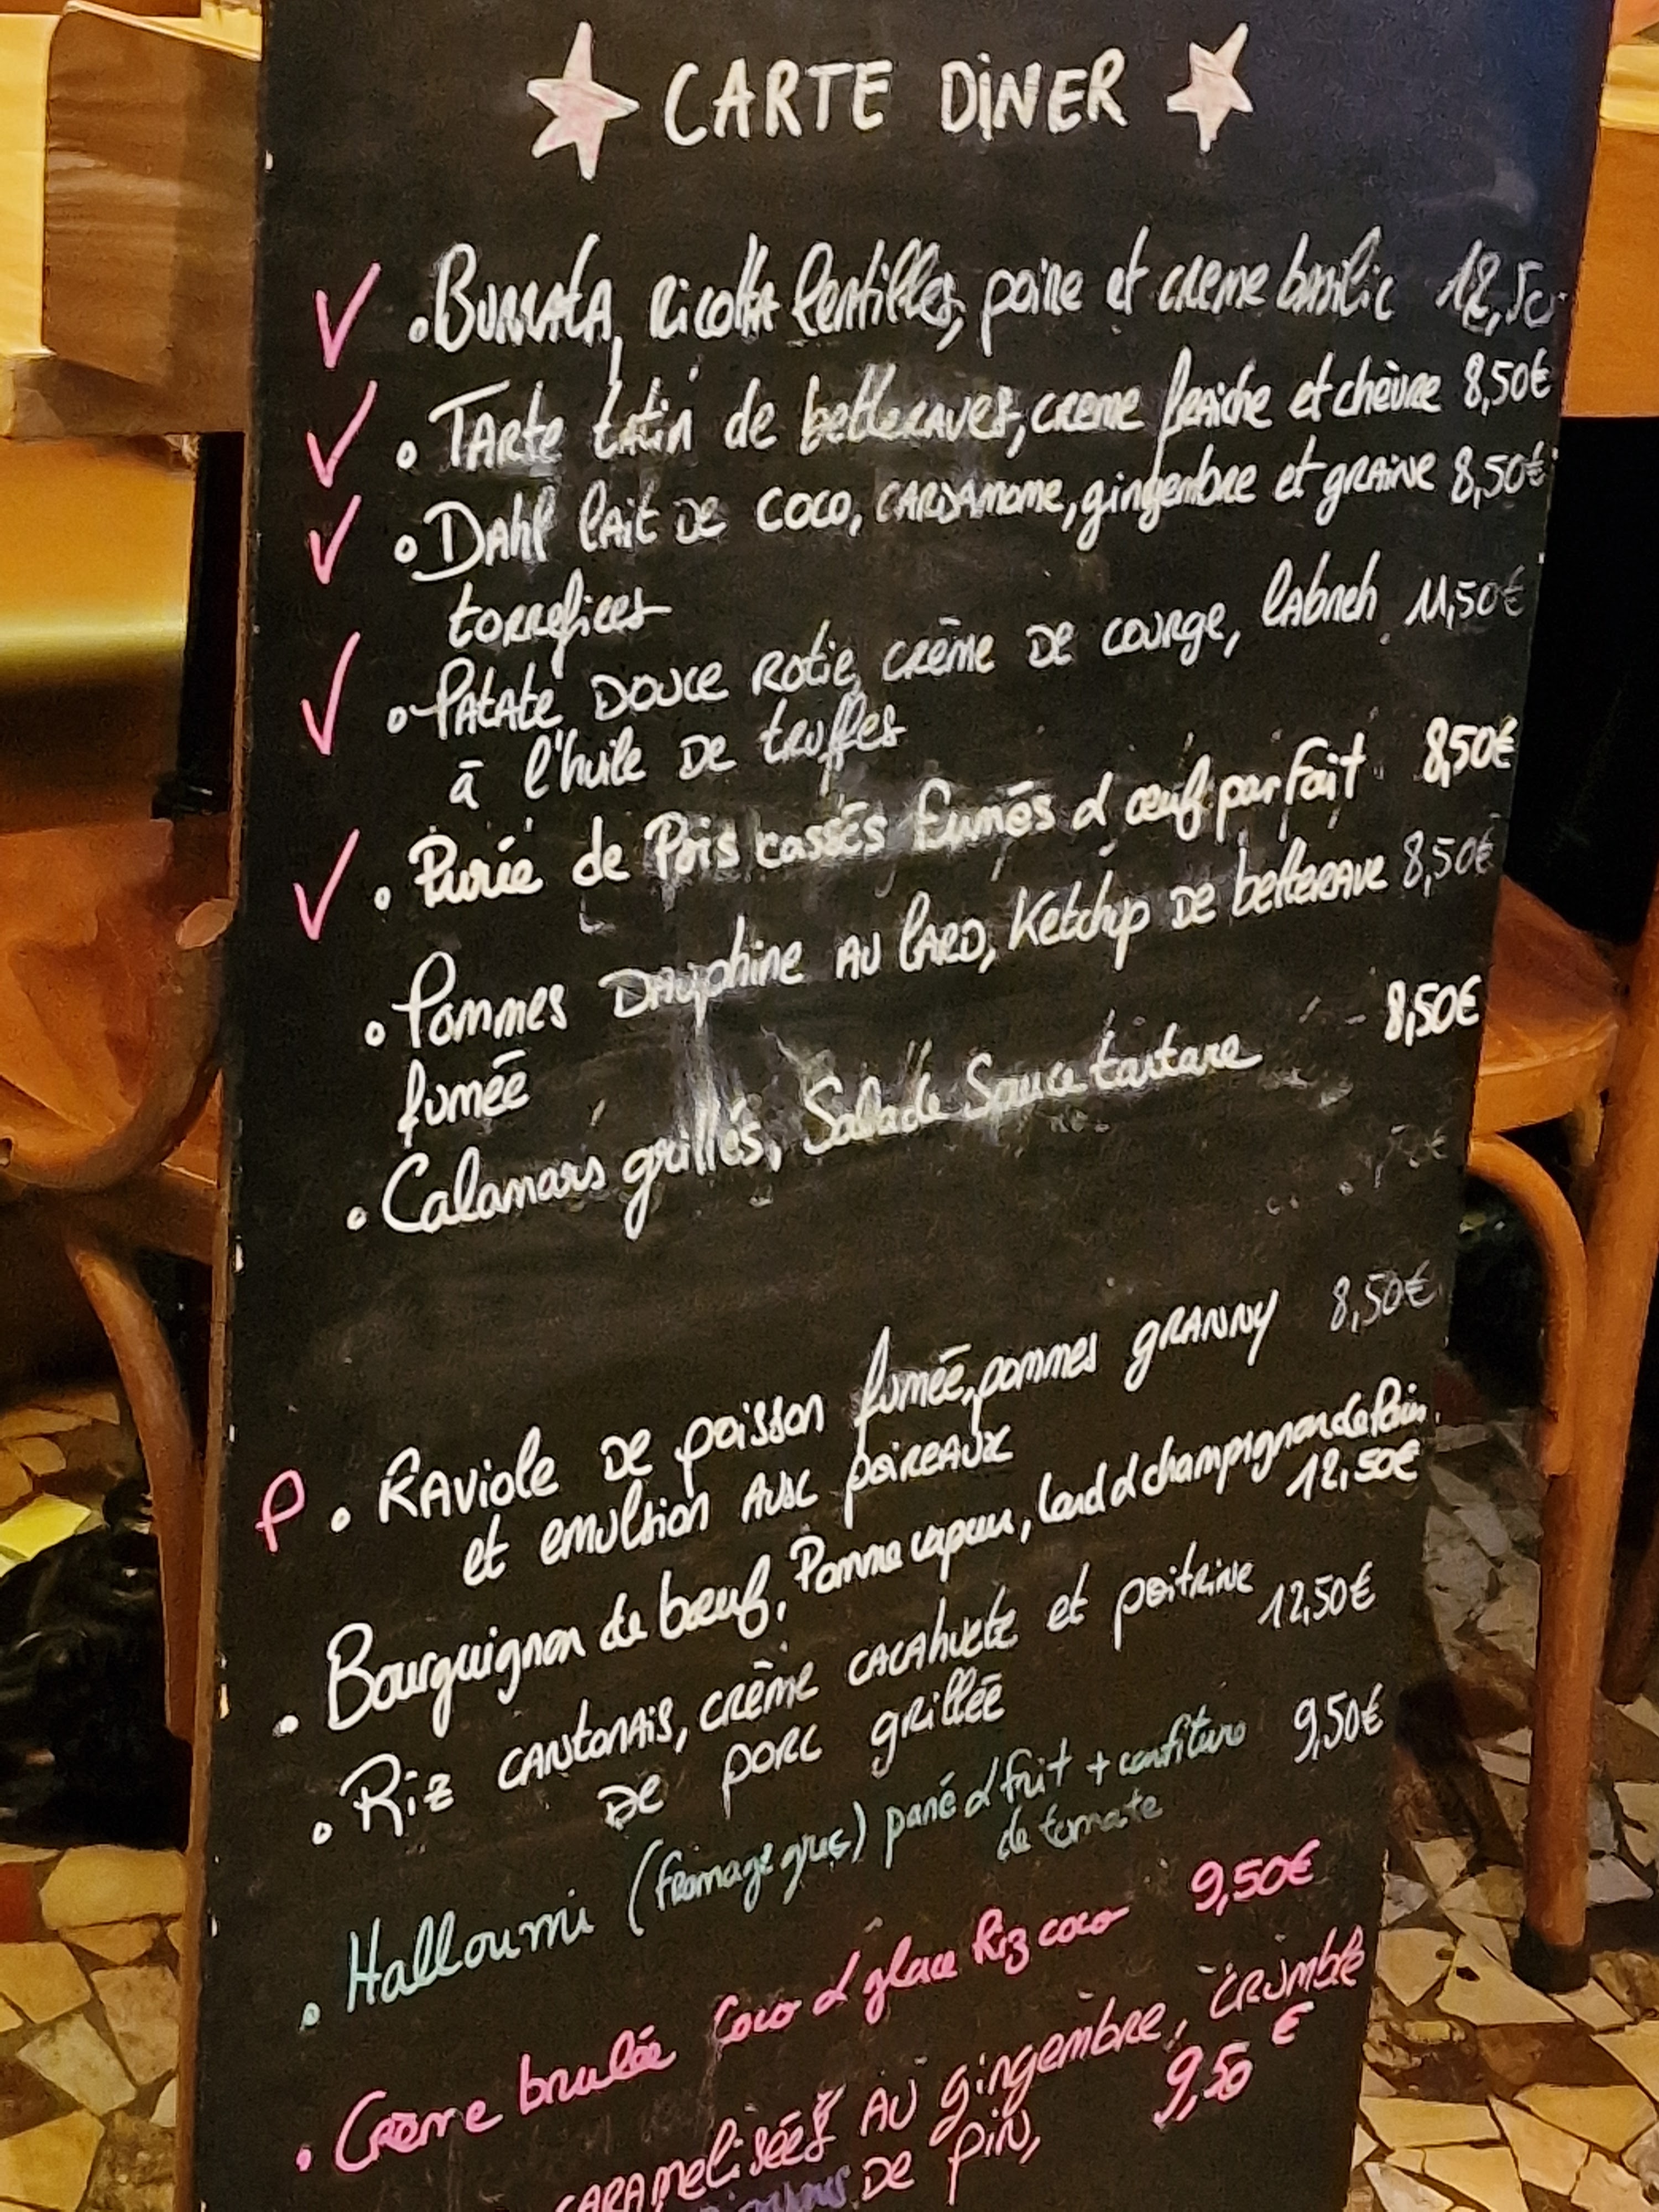 CARTE DÎNER
V • Burrata, Ricotta lentilles, poire et creme basilic 12,50
V • Tarte tatin de betteraves, creme fraiche et chèvre 8,50€
V • Dahl lait de coco, cardamome, gingembre et graine 8,50€
torrefiees
V • Patate douce rotie, crème de courge, labneh 11,50€
à l'huile de truffes
V • Purée de Pois cassés fumés & œuf parfait 8,50€
• Pommes Dauphine au lard, Ketchup de betterave 8,50€
fumée
• Calamars grillés, Salade Sauce tartare 8,50€
P • Raviole de poisson fumée, pommes granny 8,50€
et emulsion aux poireaux
• Bourguignon de bœuf, Pomme vapeur, lard & champignon de Paris
12,50€
• Riz cantonais, crème cacahuete et poitrine 12,50€
de porc grillée
• Halloumi (fromage grec) pané & frit + confiture 9,50€
de tomate
• Crème brulée Coco & glace Riz coco 9,50€
caramelisées au gingembre, crumble
de pin, 9,50 €